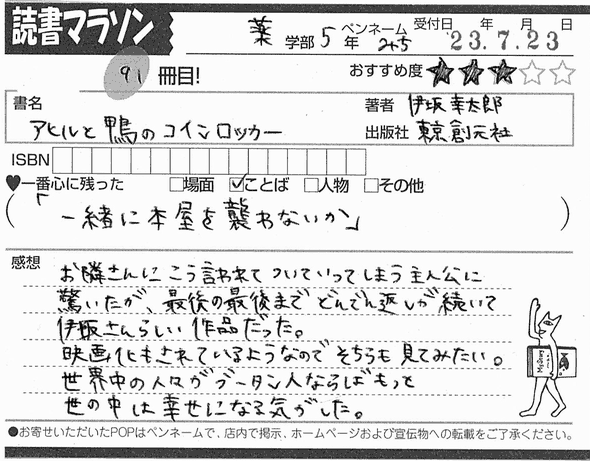 読書マラソン
薬 学部 5 年 ペンネーム みち 受付日 年 月 日 '23.7.23
91 冊目!
おすすめ度 ★★★☆☆
書名 アヒルと鴨のコインロッカー
著者 伊坂幸太郎
出版社 東京創元社
ISBN
♥一番心に残った □場面 ☑ことば □人物 □その他
(「一緒に本屋を襲わないか」)
感想
お隣さんにこう言われてついていってしまう主人公に
驚いたが、最後の最後までどんでん返しが続いて
伊坂さんらしい作品だった。
映画化もされているようなのでそちらも見てみたい。
世界中の人々がブータン人ならばもっと
世の中は幸せになる気がした。
●お寄せいただいたPOPはペンネームで、店内で掲示、ホームページおよび宣伝物への転載をご了承ください。